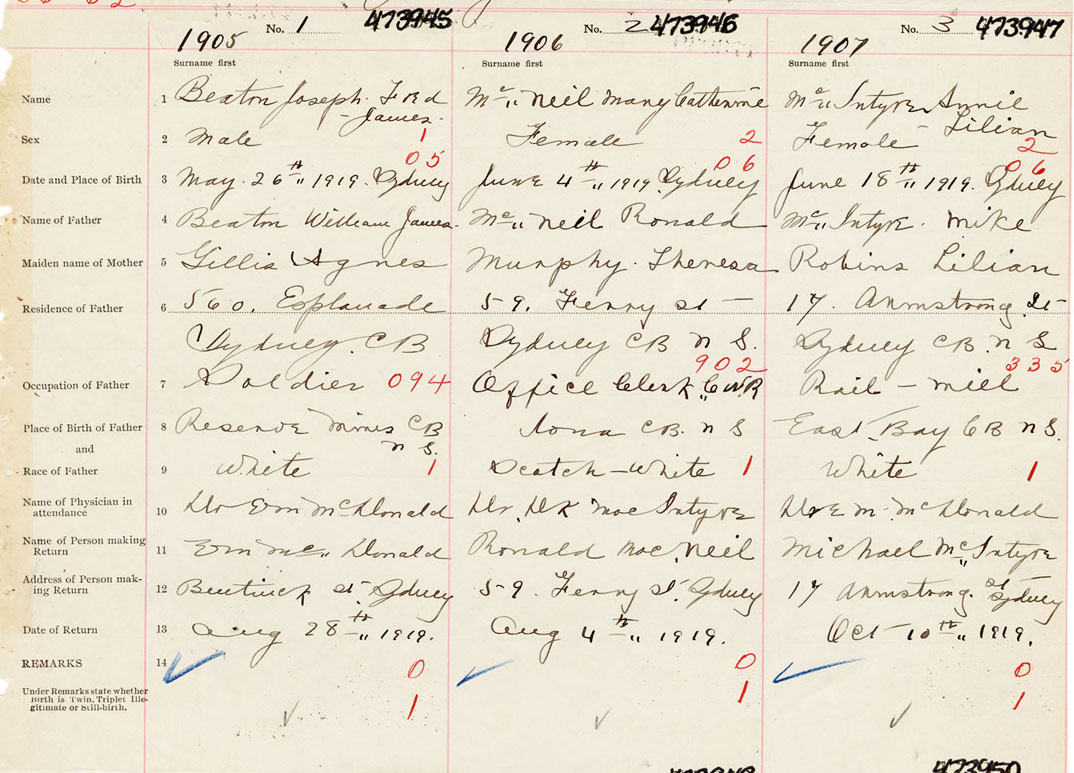 No. 1 473945 No. 2 473946 No. 3 473947
1905 1906 1907
Surname first Surname first Surname first
Name 1 Beaton Joseph Fred Mc„ Neil Mary Catherine Mc„ Intyre Annie
James. Lilian
Sex 2 Male 1 Female 2 Female 2
05 06 06
Date and Place of Birth 3 May. 26th„ 1919. Sydney June 4th„ 1919. Sydney June 18th„ 1919. Sydney
Name of Father 4 Beaton William James. Mc„ Neil Ronald Mc„ Intyre. Mike
Maiden name of Mother 5 Gillis Agnes Murphy. Theresa Robins Lilian
Residence of Father 6 560. Esplanade 59. Ferry st – 17. Armstrong. St-
Sydney. CB Sydney CB N S. Sydney CB. N S
902 335
Occupation of Father 7 Soldier 094 Office Clerk „ C N R Rail – mill
Place of Birth of Father 8 Reserve Mines CB Iona CB. N S East Bay CB N S.
and N S.
Race of Father 9 White 1 Scotch – White 1 White 1
Name of Physician in
attendance 10 Dr Em McDonald Dr. DK Mac Intyre Dr E M. McDonald
Name of Person making
Return 11 Em Mc„ Donald Ronald Mac. Neil Michael Mc„ Intyre
Address of Person mak-
ing Return 12 Bentinck St. Sydney 59. Ferry St. Sydney 17 Armstrong. St Sydney
Date of Return 13 Aug 28th„ 1919. Aug 4th„ 1919. Oct 10th„ 1919.
REMARKS 14 0 0 0
Under Remarks state whether
Birth is Twin, Triplet Ille-
gitimate or Still-birth. 1 1 1
473950